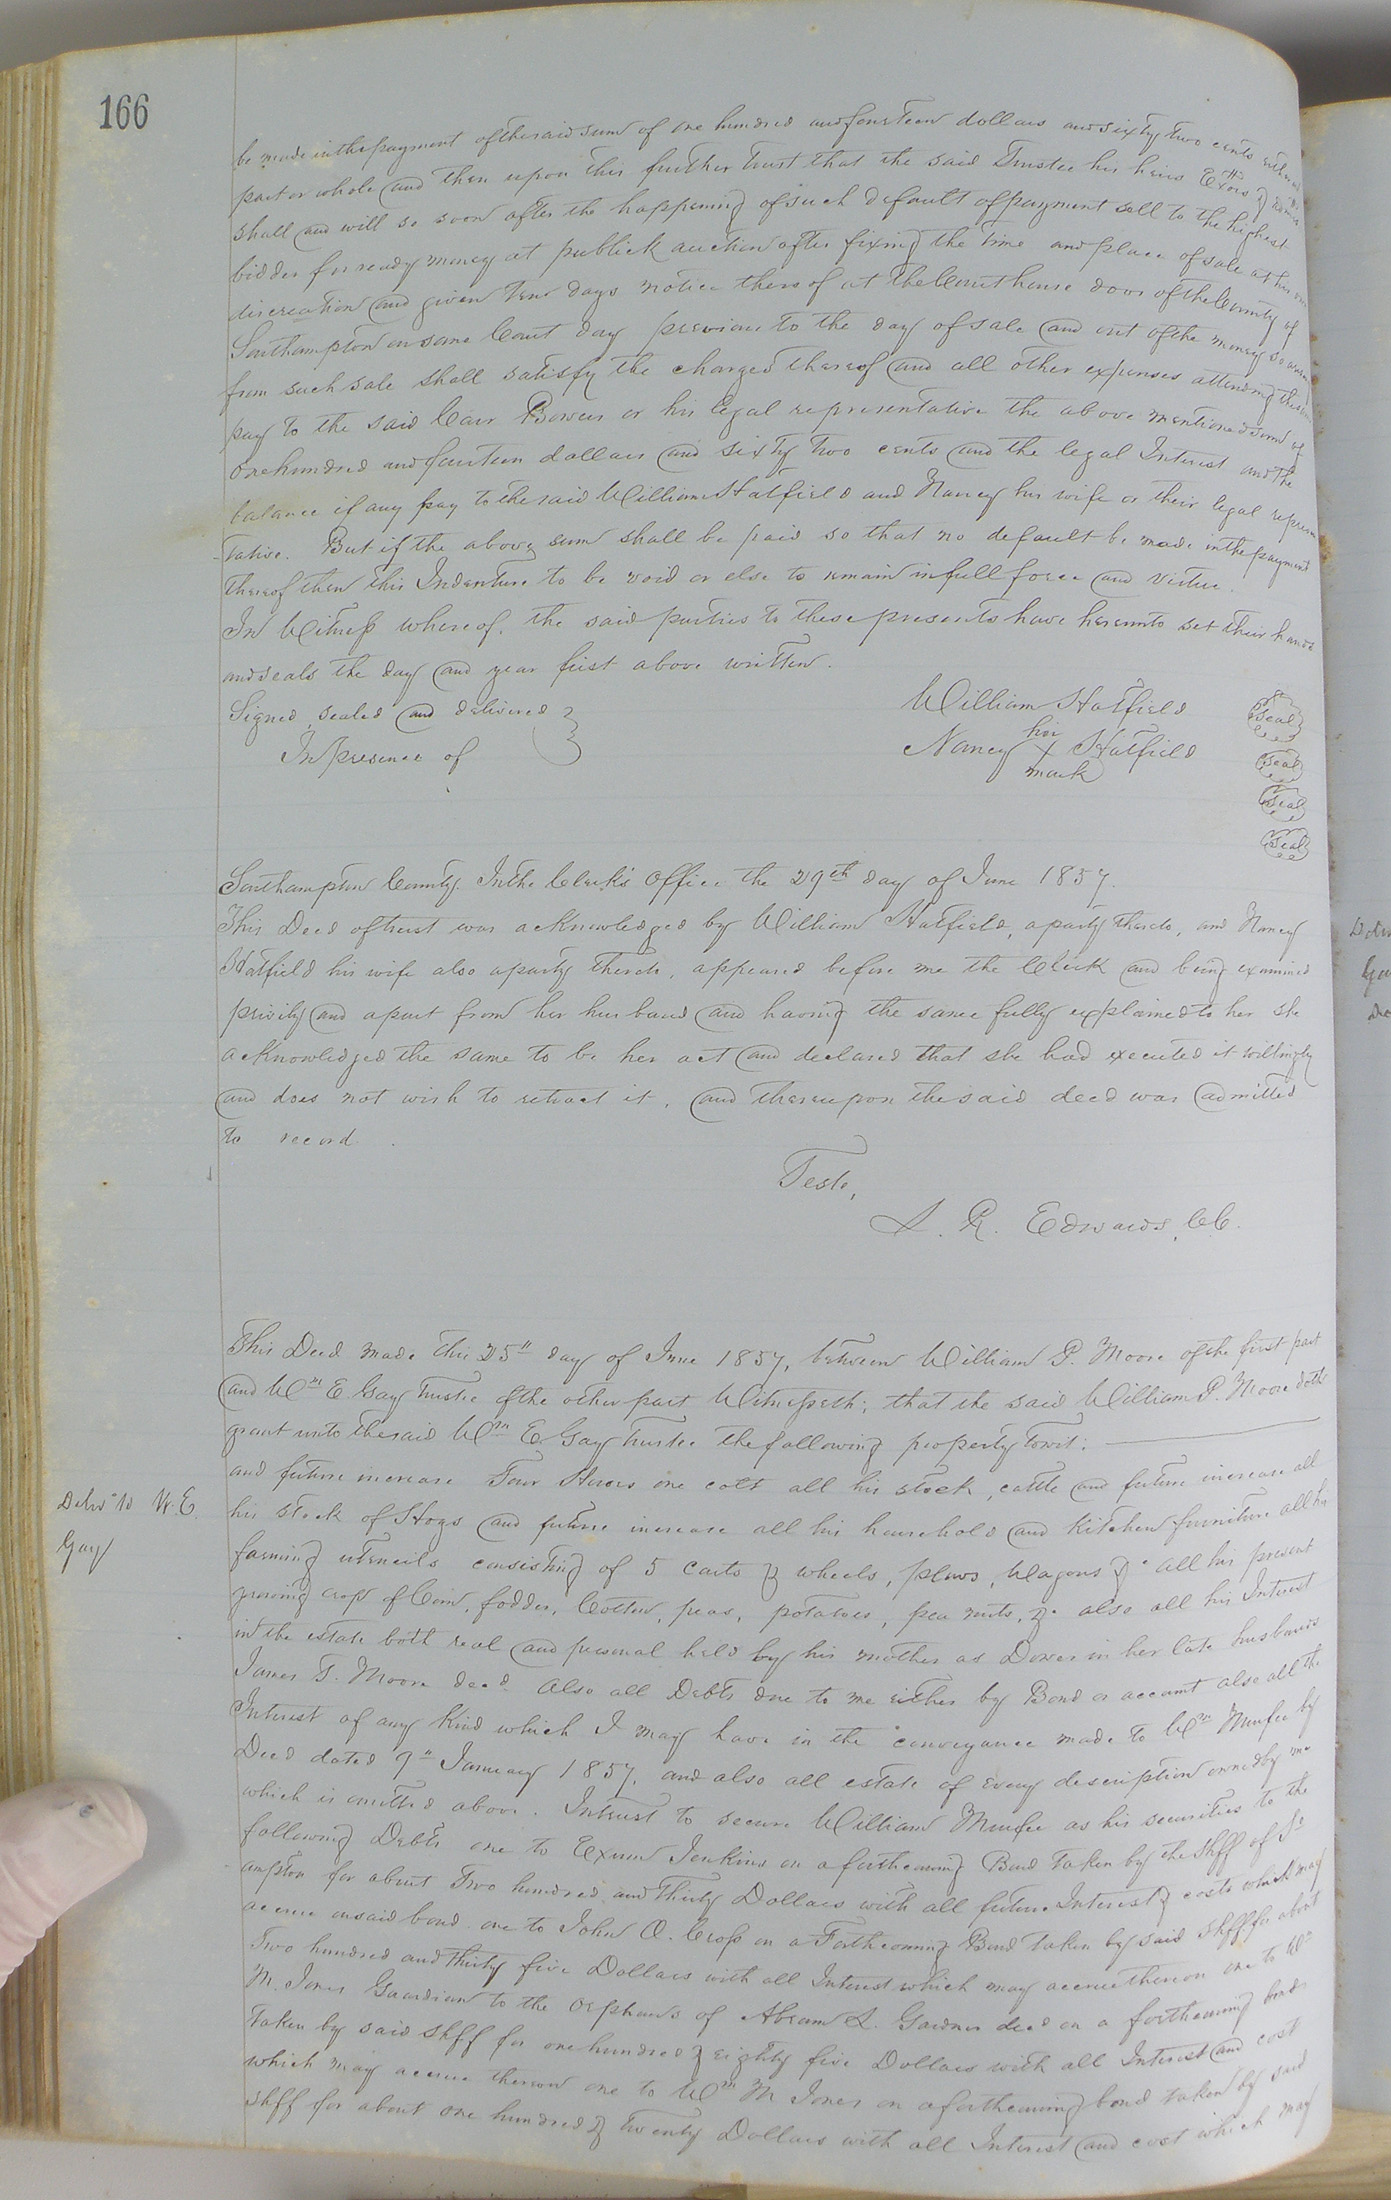 166
be made in the payment of the said sum of one hundred and fourteen dollars and sixty two cents either in
part or whole and then upon this further trust that the said Trustee his heirs Exors &
shall and will so soon after the happening of such default of payment sell to the highest
bidder for ready money at publick auction after fixing the time and place of sale at his own
discreation and given ten days notice thereof at the Courthouse door of the County of
Southampton on some Court day previous to the day of sale and out of the money so
from such sale shall satisfy the charges thereof and all other expenses attending
pay to the said Carr Bowers or his legal representative the above mentioned sum of
one hundred and fourteen dollars and sixty two cents and the legal Interest and the
balance if any pay to the said William Hatfield and Nancy his wife or their legal represen
-tative. But if the above sum shall be paid so that no default be made in the payment
thereof then this Indenture to be void or else to remain in full force and virtue.
In Witness whereof, the said parties to these presents have hereunto set their hands
and seals the day and year first above written.
Signed, sealed and delivered }
In presence of
William Hatfield (Seal)
her
Nancy X Hatfield (Seal)
mark
(Seal)
(Seal)
Southampton County. In the Clerk's Office the 29th day of June 1857.
This Deed of trust was acknowledged by William Hatfield, a party thereto, and Nancy
Hatfield his wife also a party thereto, appeared before me the Clerk and being examined
privily and apart from her husband and having the same fully explained to her she
acknowledged the same to be her act and declared that she had executed it willingly
and does not wish to retract it, and thereupon the said deed was admitted
to record.
Teste,
L. R. Edwards, C.C.
This Deed made this 25" day of June 1857, between William P. Moore of the first part
and Wm E Gay Trustee of the other part Witnesseth; that the said William P. Moore doth
grant unto the said Wm E. Gay Trustee the following property towit:
and future increase Four Horses one colt all his stock, cattle and future increase all
Delvd to W. E.
Gay
his stock of Hogs and future increase all his household and Kitchen furniture all his
farming utensils consisting of 5 carts & wheels, plows, Wagons &c all his present
growing crop of Corn, fodder, Cotton, peas, potatoes, pea nuts, &c also all his Interest
in the estate both real and personal held by his mother as Dower in her late husbands
James T. Moore decd. Also all Debts due to me either by Bond or account also all the
Interest of any kind which I may have in the conveyance made to Wm Minfee by
Deed dated 9" January 1857, and also all estate of every description owned by me
which is omitted above. In trust to secure William Minfee as his securities to the
following Debts one to Exum Jenkins on a forthcoming Bond taken by the Shff of So
ampton for about Two hundred and Thirty Dollars with all future Interest & costs which may
accrue on said bond. one to John A. Cross on a Forthcoming Bond taken by said Shff for about
Two hundred and thirty five Dollars with all Interest which may accrue thereon one to Wm
M. Jones Guardian to the Orphans of Abram L. Gardner decd on a forthcoming bond
taken by said Shff for one hundred & eighty five Dollars with all Interest and cost
which may accrue thereon one to Wm M Jones on a forthcoming bond taken by said
Shff for about one hundred & twenty Dollars with all Interest and cost which may